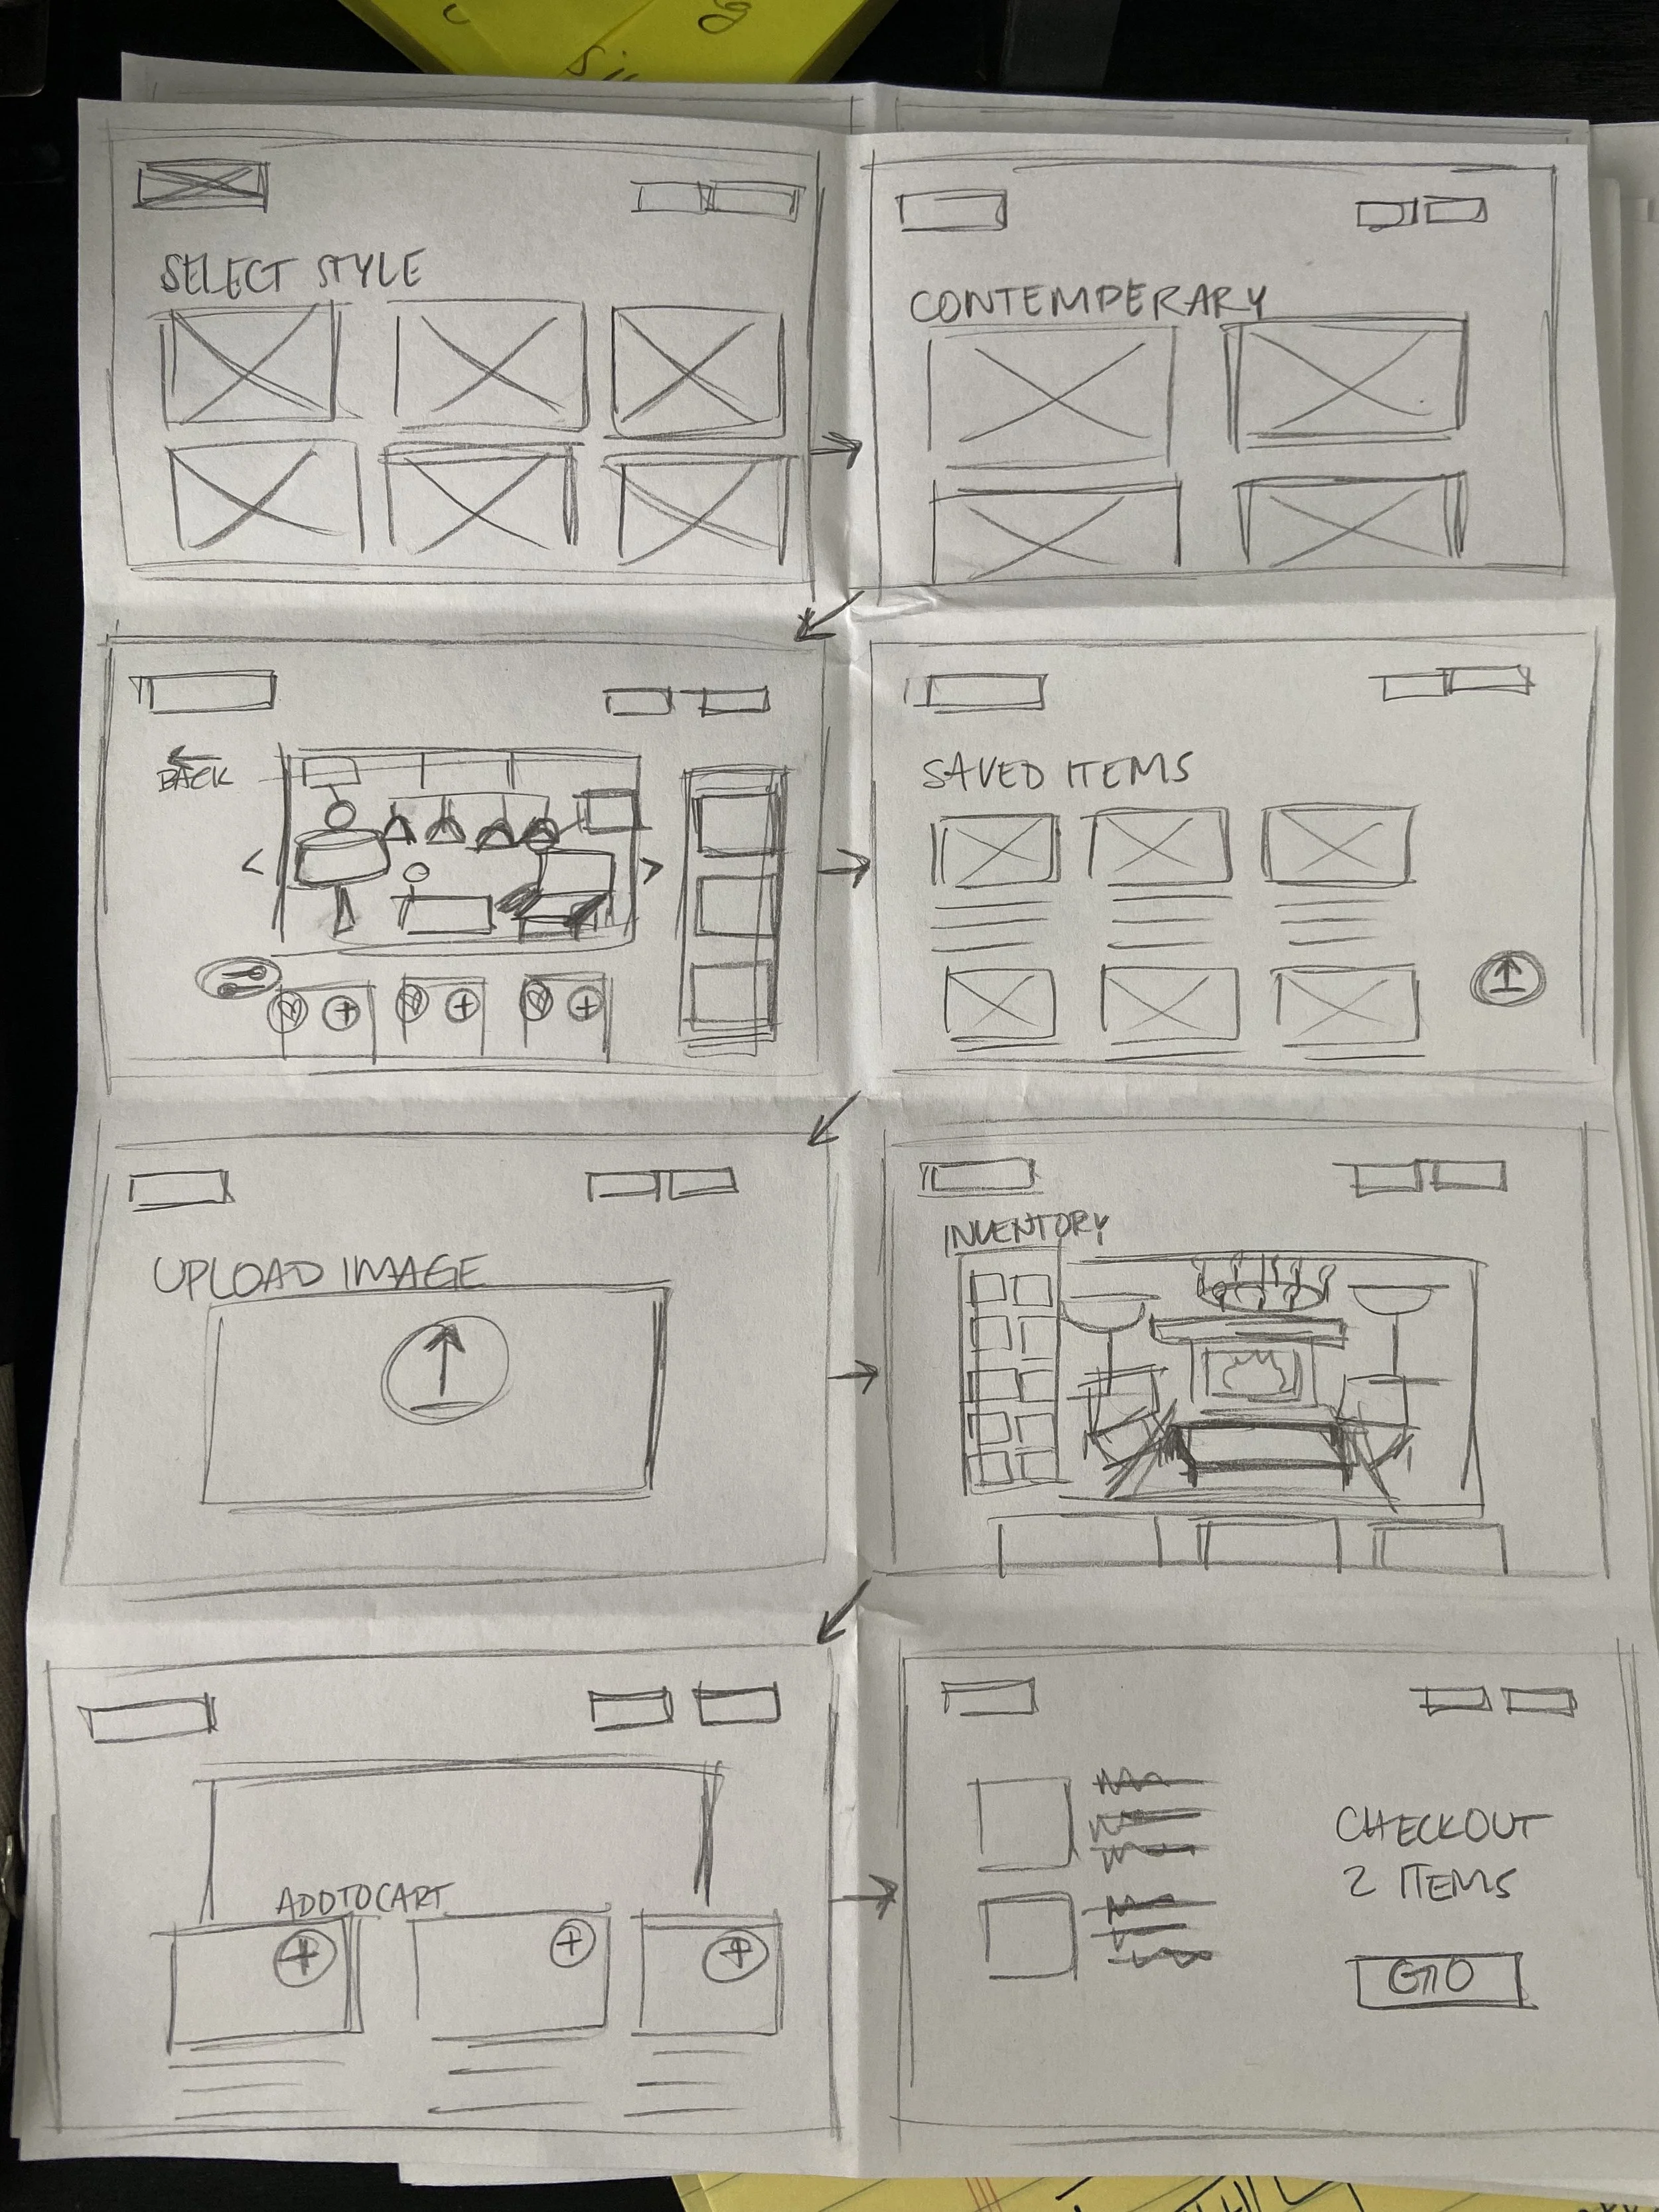 SELECT STYLE
CONTEMPERARY
BACK
SAVED ITEMS
UPLOAD IMAGE
INVENTORY
ADD TO CART
CHECKOUT
2 ITEMS
GO